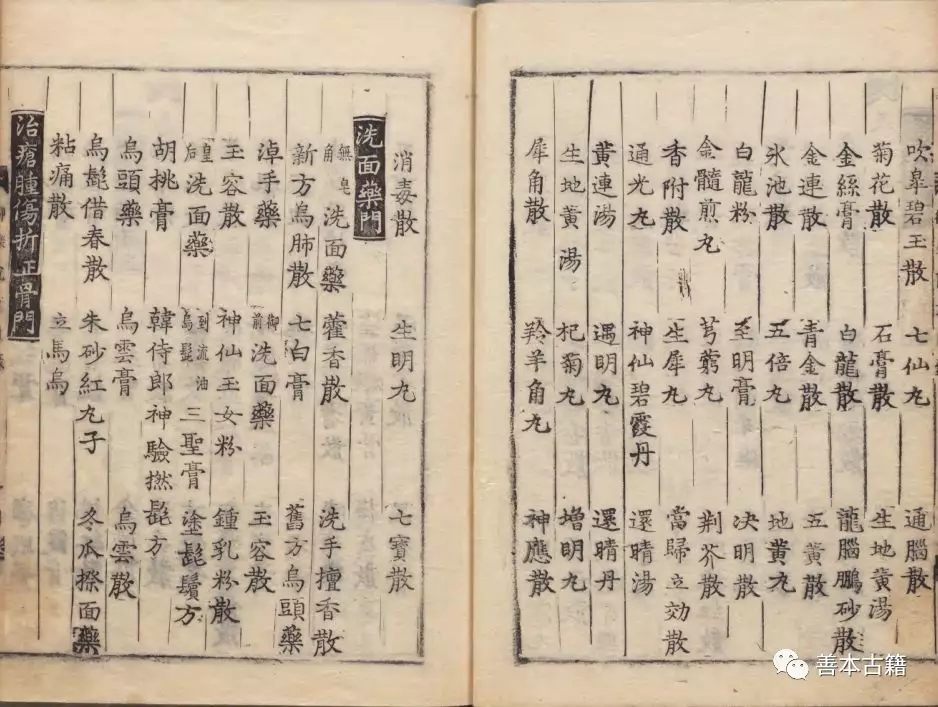 吹㚖碧玉散 七仙丸 通腦散
菊花散 石膏散 生地黄湯
金絲膏 白龍散 龍腦鵬砂散
金連散 青金散 五黄散
氷池散 五倍丸 地黄丸
白龍粉 至明膏 决明散
金髓煎丸 芎藭丸 荆芥散
香附散 生犀丸 當歸立効散
通光丸 神仙碧霞丹 還晴湯
黄連湯 遇明丸 還晴丹
生地黄湯 杞菊丸 增明丸
犀角散 羚羊角丸 神應散
消毒散 生明丸 七寶散
洗面藥門
無皂角洗面藥 藿香散 洗手檀香散
新方烏肺散 七白膏 舊方烏頭藥
淖手藥 御前洗面藥 玉容散
玉容散 神仙玉女粉 鍾乳粉散
皇后洗面藥 到流油烏髭三聖膏 塗髭鬚方
胡桃膏 韓侍郎神驗撚髭方
烏頭藥 烏雲膏 烏雲散
烏髭借春散 朱砂紅丸子 冬瓜擦面藥
粘痛散 立馬烏
治瘡腫傷折正骨門
善本古籍